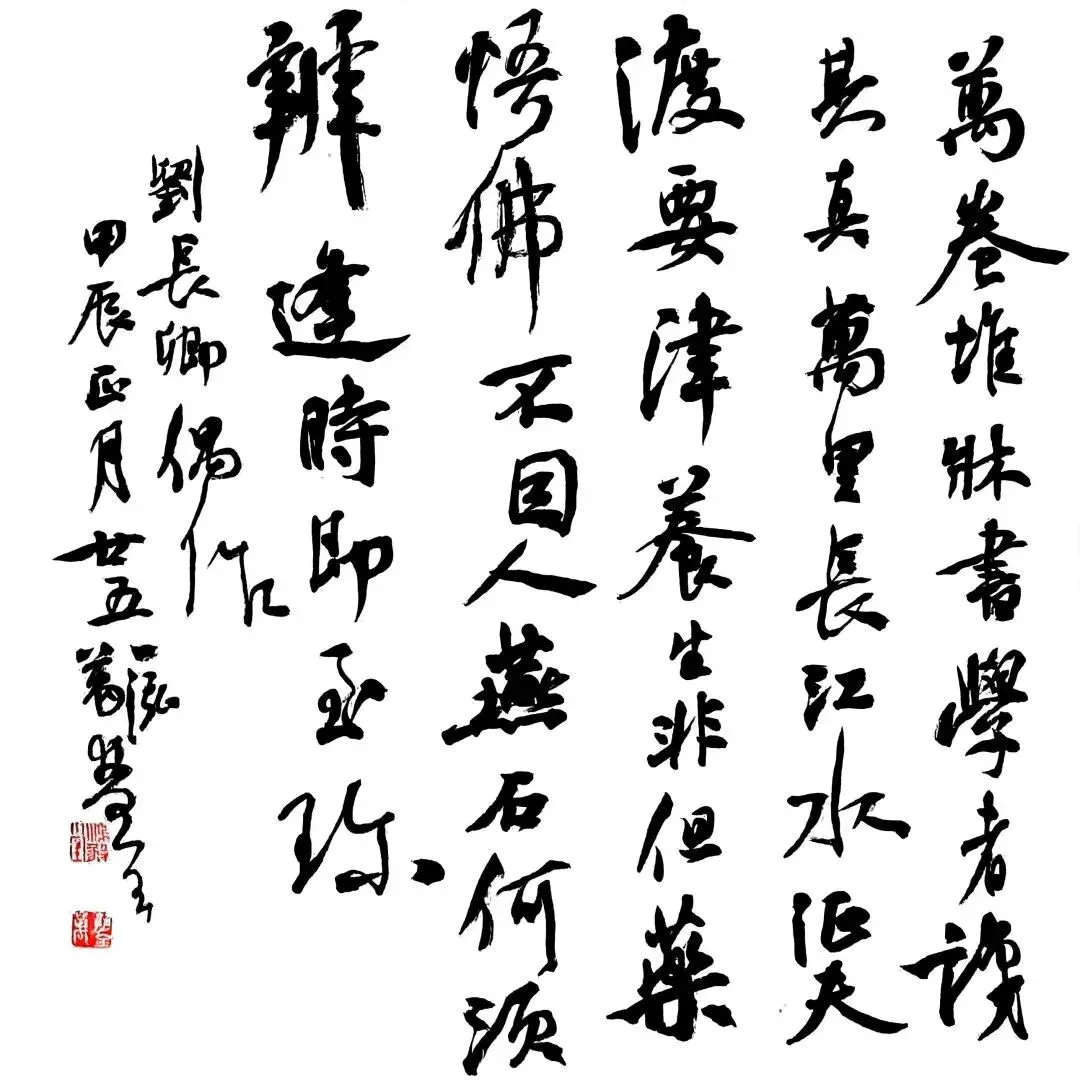 萬卷堆牀書學者識
其真萬里長江水征夫
渡要津養生非但藥
悟佛不因人燕石何須
辨逢時即至珍
劉長卿偶作
甲辰正月廿五